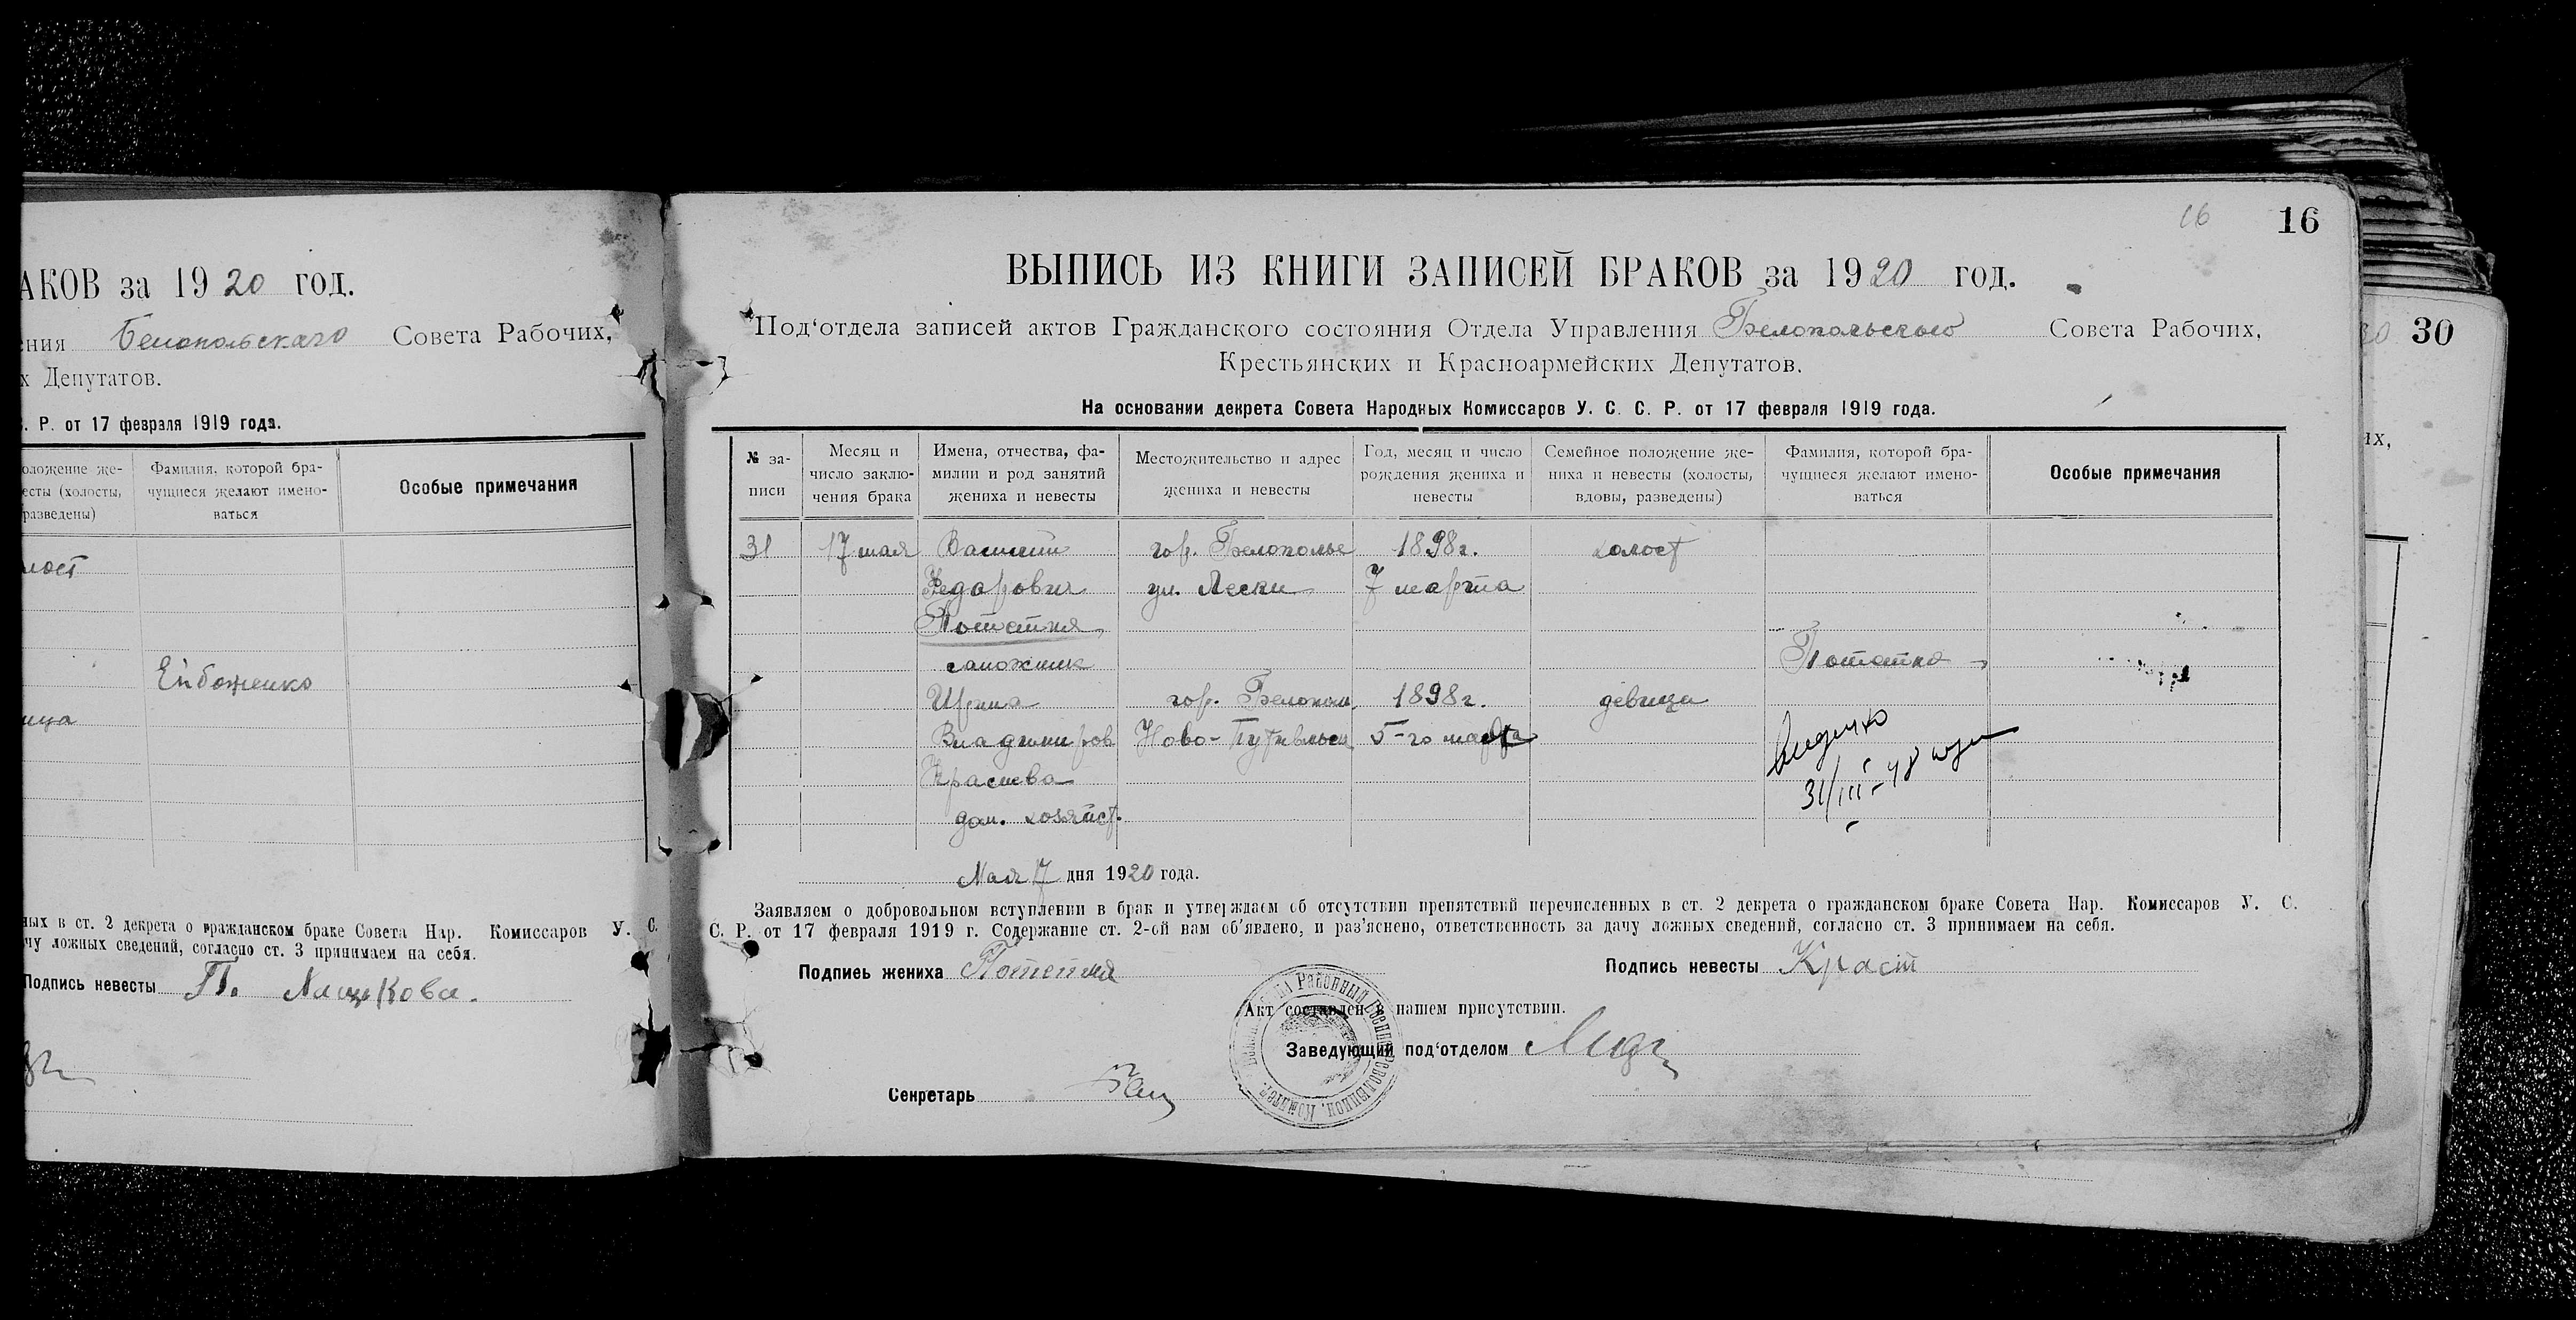 АКОВ за 1920 год.
ения Белопольскаго Совета Рабочих,
х Депутатов.
. Р. от 17 февраля 1919 года.
оложение же-
есты (холосты,
разведены)
Фамилия, которой бра-
чущиеся желают имено-
ваться
Особые примечания
лост
ица
ных в ст. 2 декрета о гражданском браке Совета Нар. Комиссаров У. С.
чу ложных сведений, согласно ст. 3 принимаем на себя.
Подпись невесты П.
16
16
ВЫПИСЬ ИЗ КНИГИ ЗАПИСЕЙ БРАКОВ за 1920 год.
Под‘отдела записей актов Гражданского состояния Отдела Управления Белопольского Совета Рабочих,
Крестьянских и Красноармейских Депутатов.
На основании декрета Совета Народных Комиссаров У. С. С. Р. от 17 февраля 1919 года.
№ за-
писи
Месяц и
число заклю-
чения брака
Имена, отчества, фа-
милии и род занятий
жениха и невесты
Местожительство и адрес
жениха и невесты
Год, месяц и число
рождения жениха и
невесты
Семейное положение же-
ниха и невесты (холосты,
вдовы, разведены)
Фамилия, которой бра-
чущиеся желают имено-
ваться
Особые примечания
31 17 мая Василий гор. Белополье 1898г. холост
Федорович ул. Лески 7 марта
сапожник
Ирина гор. Белопол. 1898г. девица
Владимиров 5-го марта
дом. хозяйст.
Мая 17 дня 1920 года.
Заявляем о добровольном вступлении в брак и утверждаем об отсутствии препятствий перечисленных в ст. 2 декрета о гражданском браке Совета Нар. Комиссаров У. С.
С. Р. от 17 февраля 1919 г. Содержание ст. 2-ой нам об‘явлено, и раз‘яснено, ответственность за дачу ложных сведений, согласно ст. 3 принимаем на себя.
Подпись жениха
Подпись невесты Краст
Акт составлен в нашем присутствии.
Заведующий под‘отделом
Секретарь
30
их,